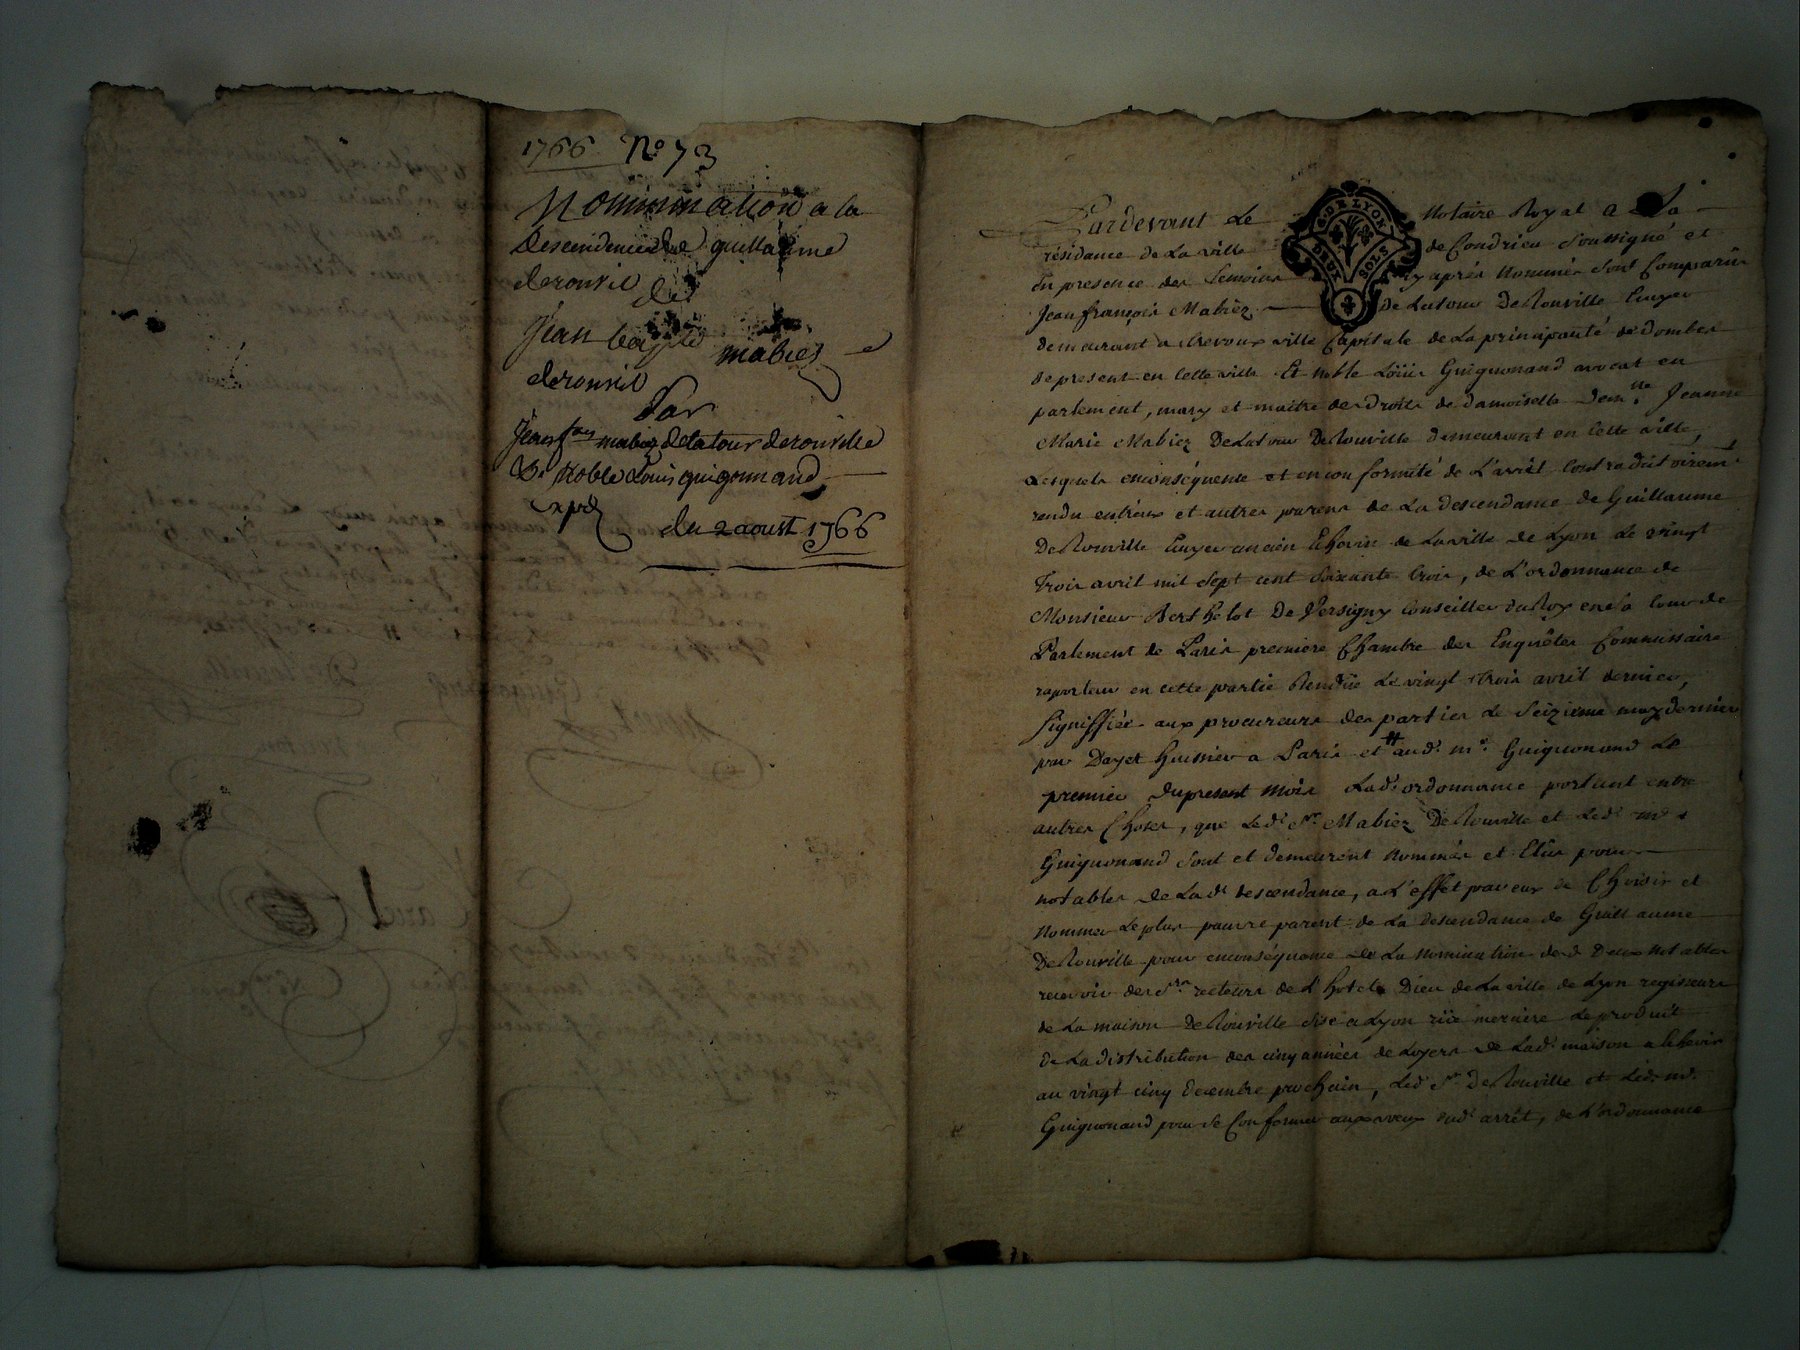 1766 No 73
Nominnation a la
Descendence de guillaume
derouvil de
Jean baptte mabiez
derouvil
Par
Jean fçois mabiez delatour derouville
& Noble Louis guigonnand
expéd
du 2 aoust 1766
G. DE LYON
DEUX SOLS
Pardevant Le Notaire Royal a La
résidance de La ville de Condrieu soussigné et
En presence des temoins cy après Nommés sont Comparûs
Jean françois Mabiez de Latour DeRouville Ecuyer
demeurant a trevoux ville Capitale de La principauté de dombes
de present en Cette ville Et Noble Loüis Guiguonand avocat en
parlement, mary et maitre des droits de damoiselle Dem.lle Jeanne
Marie Mabiez DeLatour DeRouville demeurant en Cette ville,
Lesquels enconséquence et en conformité de L'arrêt Contradictoirem.t
rendu entr'eux et autres parens de La descendance de Guillaume
DeRouville Ecuyer ancien Echevin de La ville de Lyon Le vingt
trois avril mil sept cent soixante trois, de L'ordonnance de
Monsieur Berthelot De Versigny Conseiller du Roy en sa Cour de
Parlement de Paris premiere Chambre des Enquêtes Commissaire
raporteur en cette partie Rendüe Le vingt trois avril dernier,
signiffiée aux procureurs des parties Le seizieme may dernier
par Deyet huissier a Paris et # aud. m.e Guiguonand Le
premier du present mois Lad. ordonnance portant entre
autres Choses, que Led. Sr. Mabiez DeRouville et Led. me
Guiguonand sont et demeurent nommés et Elûs pour
notables de Lad. descendance, a L'effet par eux de Choisir et
nommer Le plus pauvre parent de La descendance de Guillaume
DeRouville pour enconséquence de La nomination desd. Deux notables
recevoir des Srs. recteurs de L'hotel Dieu de La ville de Lyon regisseurs
de La maison DeRouville sise a Lyon rüe merciere Le produit
de La distribution des cinq années de Loyers de Lad. maison a Echeoir
au vingt cinq decembre prochain, Led. Sr. DeRouville et Led. me.
Guiguonand pour se Conformer aux vœux dud. arrêt, de L'ordonnance